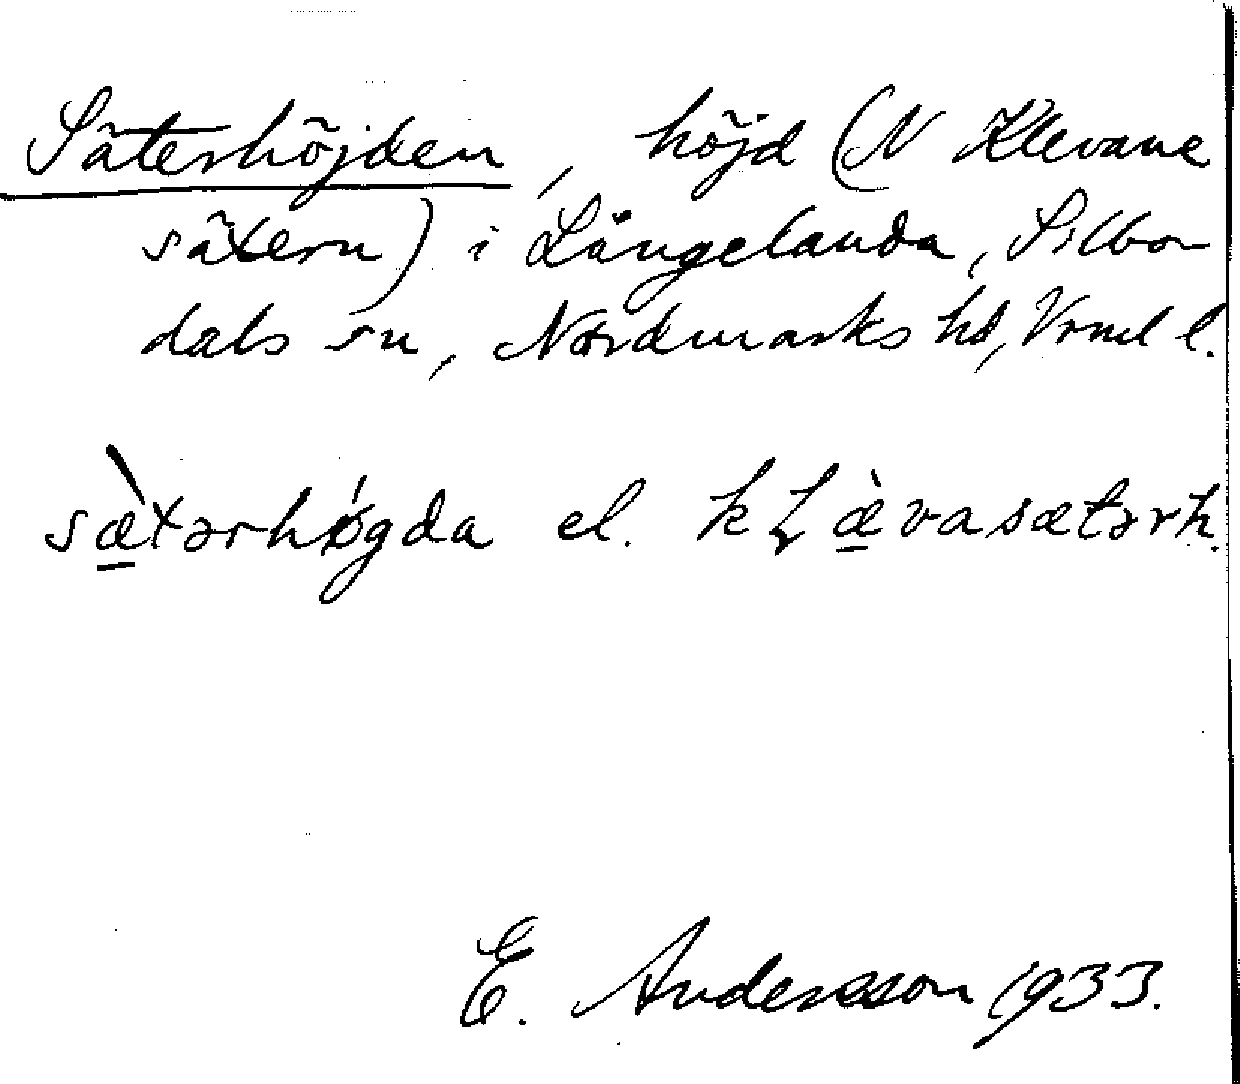 Säterhöjden, höjd (N Klevane
sätern) i Långelanda, Silbo-
dals sn, Nordmarks hd, Vrml l.
sæ̀tərhǿgda el. kɽæ̀vasætərh.
E. Andersson 1933.